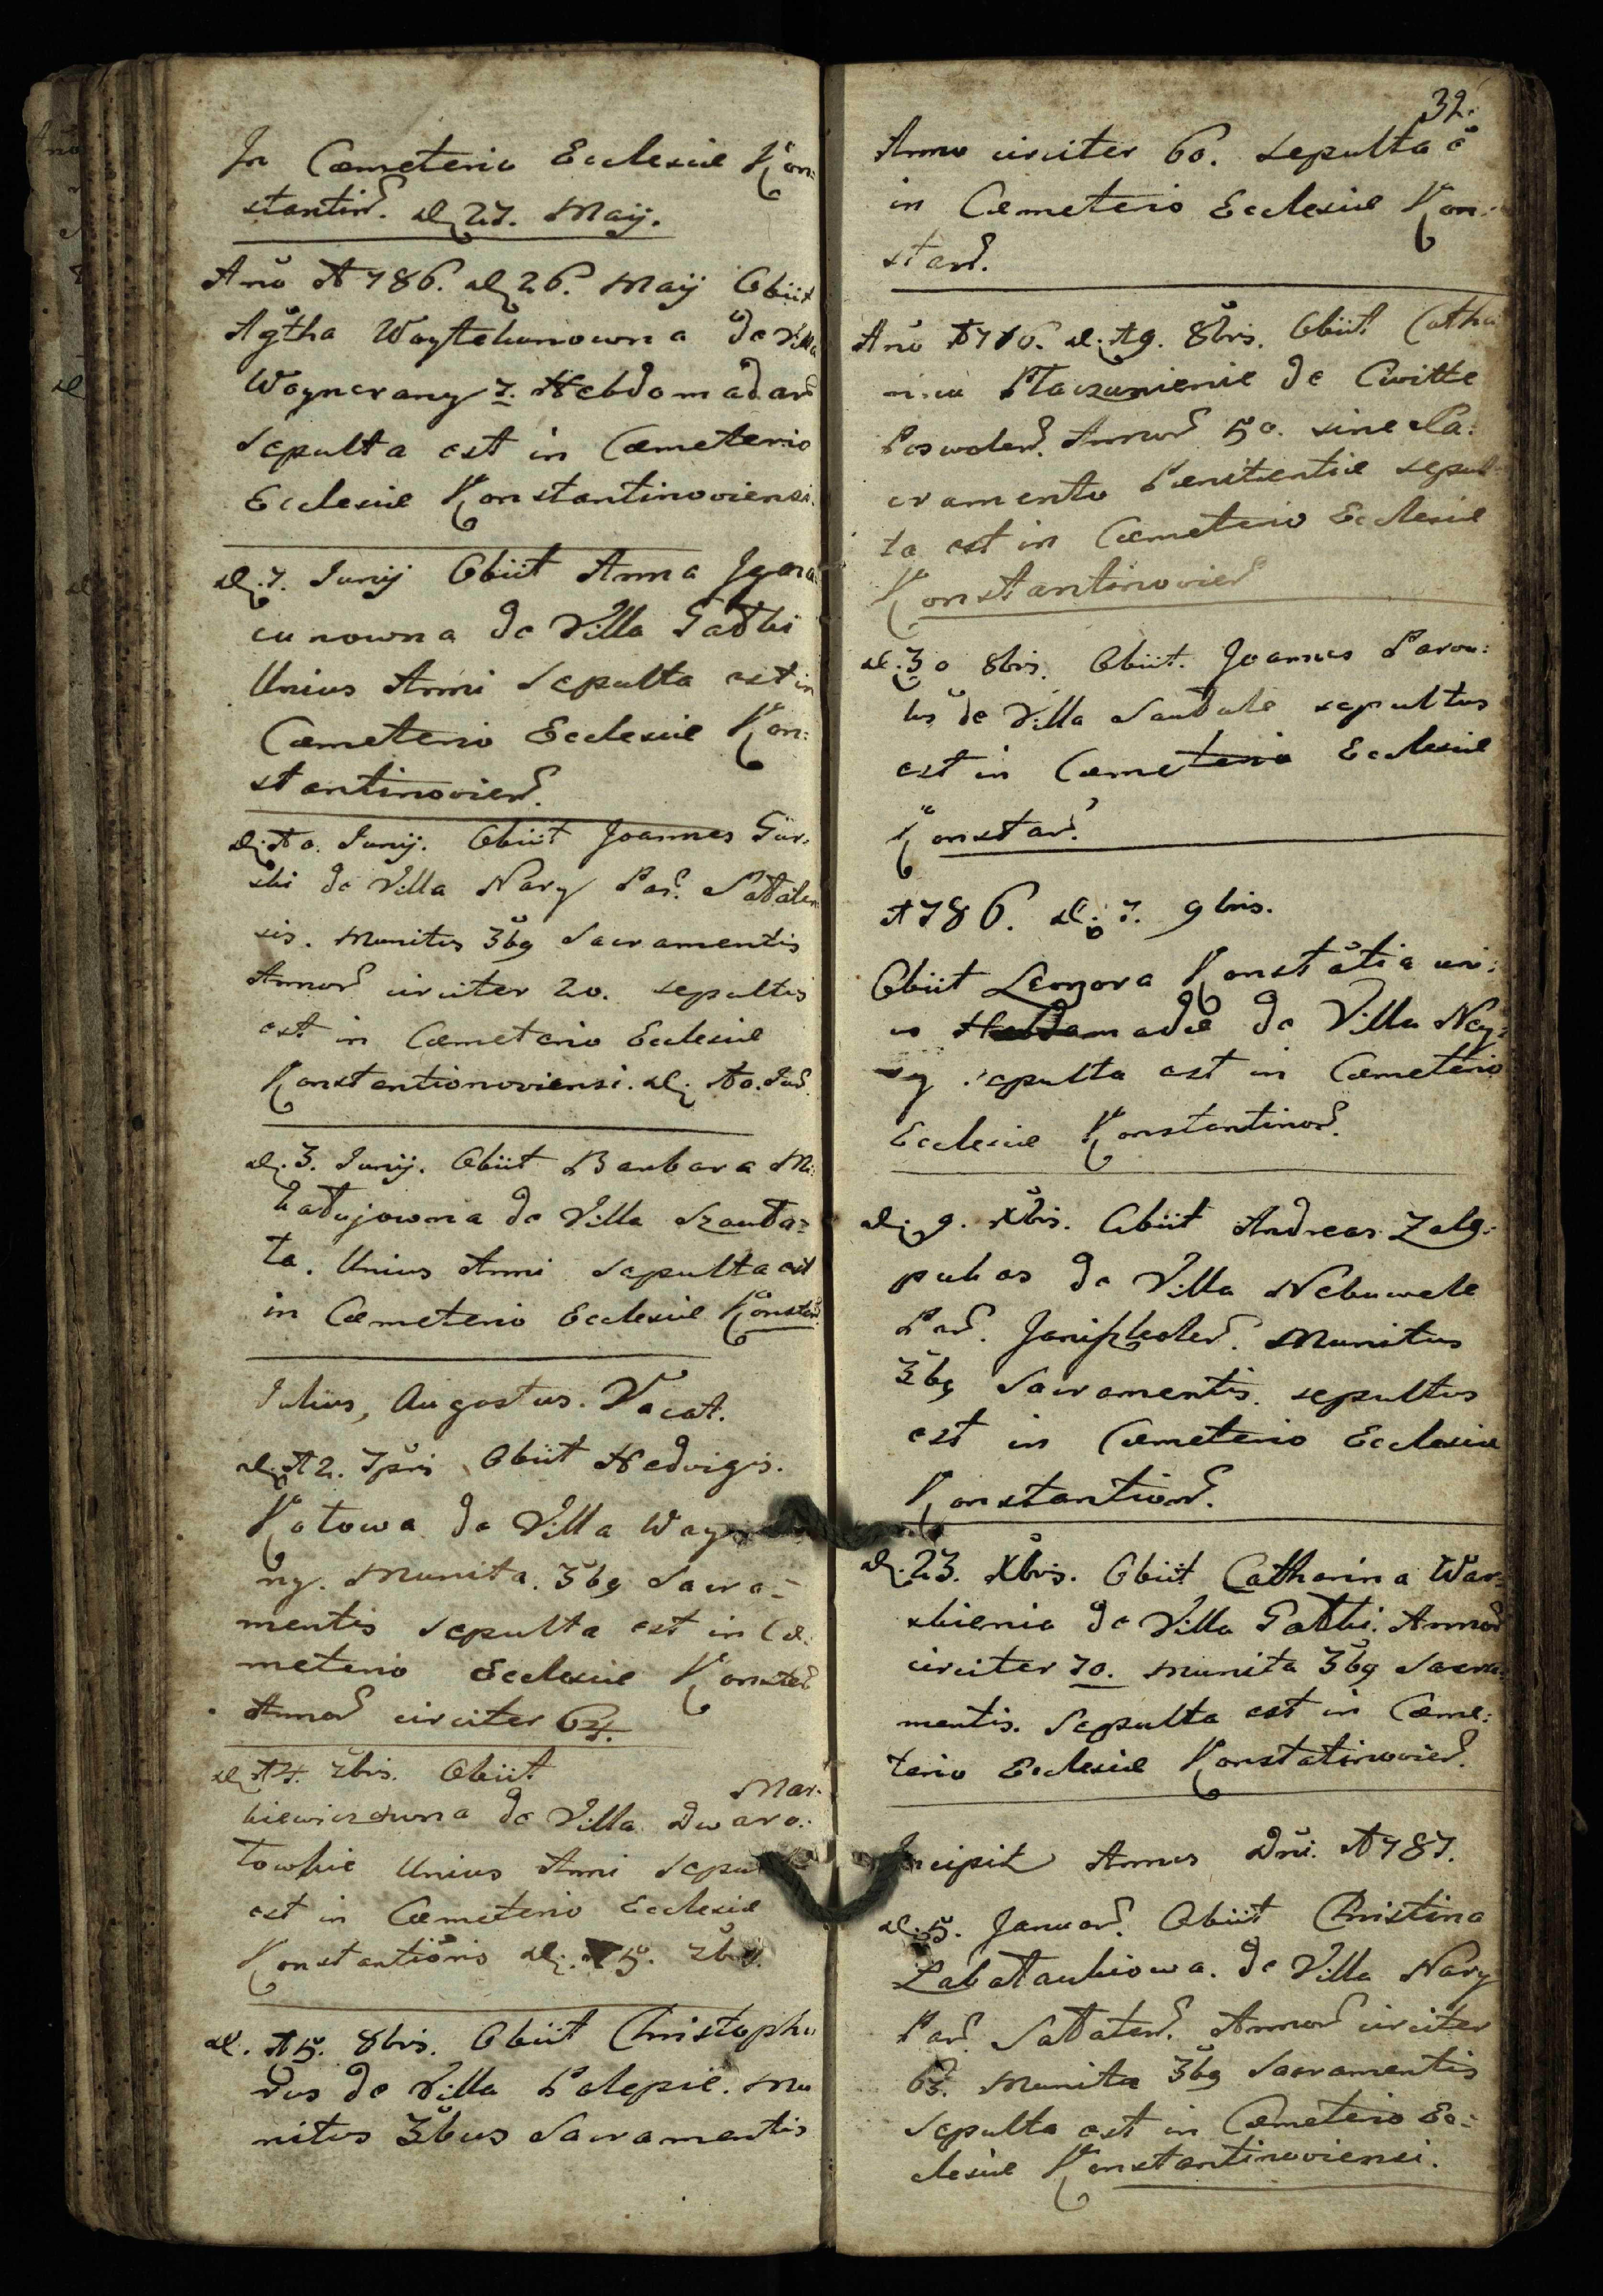 In Cæmeterio Ecclesiæ Kon:
stantin. d. 27. Maij.
Ano 1786. d. 26. Maij Obiit
Agtha Woytchunowna de Villa
Woynerany 7. Hebdomadar
Sepulta est in Cæmeterio
Ecclesiæ Konstantinoviensi.
d. 7. Junij Obiit Anna Igna
cunowna de Villa Gatki
Unius Anni Sepulta est in
Cæmeterio Ecclesiæ Kon:
stantinovien.
d. 10. Junij. Obiit Joannes Gur:
ski de Villa Nary Par. Satalen
sis. Munitus 3bg Sacramentis
Annor circiter 20. sepultus
est in Cæmeterio Ecclesiæ
Konstantionoviensi. d. 10. Jun.
d. 3. Junij. Obiit Barbara Mi:
katujowna de Villa Szauta=
ta. Unius Anni Sepulta est
in Cæmeterio Ecclesiæ Konstan
Julius, Augustus. Vacat.
d. 12. 7bris Obiit Hedvigis.
Kotowa de Villa
ny. Munita 3bg Sacra=
mentis Sepulta est in Cæ:
meterio Ecclesiæ Konstan
Annor circiter 64.
d. 14. 7bris. Obiit
Mar:
kiewiczowna de Villa Dwaro:
towkie Unius Anni
est in Cæmeterio Ecclesiæ
Konstantiōnis d. 15. 7bris.
d. 15. 8bris. Obiit Christopho
rus de Villa Polepie. Mu
nitus 3bus Sacramentis
32.
Anno circiter 60. sepulta ē
in Cæmeterio Ecclesiæ Kon:
stan.
Ano 1786. d. 19. 8bris. Obiit Catha
de Cwitte
Annor 50. sine Sa:
cramento Pœnitentiæ sepul
ta est in Cæmeterio Ecclesiæ
Konstantinovien
d. 30 8bris. Obiit. Joannes Parow:
lis de Villa Sautate sepultus
est in Cæmeterio Ecclesiæ
Konstan.
1786. d. 7. 9bris.
Obiit Leonora Konstātia uni:
us Hebdomadæ de Villa Ney:
ry sepulta est in Cæmeterio
Ecclesiæ Konstantinov.
d. 9. Xbris. Obiit Andreas Zalg:
pukas de Villa Nebuwele
Par. Janiszkolen. Munitus
3bg Sacramentis. sepultus
est in Cæmeterio Ecclesiæ
Konstantion.
d. 23. Xbris. Obiit Catharina War=
skienia de Villa Gatki. Annor
circiter 70. munita 3bg Sacra:
mentis. Sepulta est in Cæme:
terio Ecclesiæ Konstatinovien.
Incipit Annus Dni. 1787.
d. 5. Januar. Obiit Christina
Labatankiowa. de Villa Nary
Par. Satalen. Annor circiter
63. Munita 3bg Sacramentis
Sepulta est in Cæmeterio Ec=
clesiæ Konstantinoviensi.